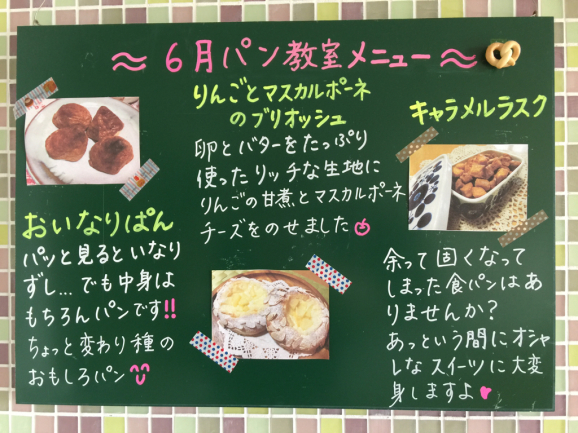 ≈6月パン教室メニュー≈
おいなりぱん
パッと見るといなり
ずし…でも中身は
もちろんパンです!!
ちょっと変わり種の
おもしろパン
りんごとマスカルポーネ
のブリオッシュ
卵とバターをたっぷり
使ったリッチな生地に
りんごの甘煮とマスカルポーネ
チーズをのせました
キャラメルラスク
余って固くなって
しまった食パンはあ
りませんか?
あっという間にオシャ
レなスイーツに大変
身しますよ